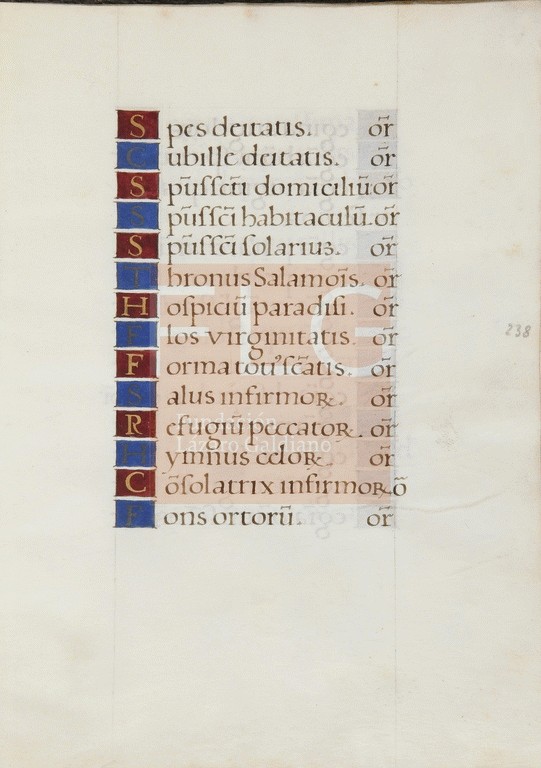 Spes deitatis. or̄
Cubille deitatis. or̄
Sp̄uſſcti domiciliū or̄
Sp̄uſſc̄i habitaculū. or̄
Sp̄uſſc̄i ſolariuꝫ. or̄
Thronus Salamoīs. or̄
Hoſpiciū paradiſi. or̄
Flos virginitatis. or̄
Forma toti'ſc̄atis. or̄
Salus infirmoꝝ. or̄
Refugiū peccatoꝝ. or̄
Hyimnus celoꝝ. or̄
Cōſolatrix infirmoꝝ. ō
Fons ortorū. or̄
238
FLG
Fundación
Lázaro Galdiano